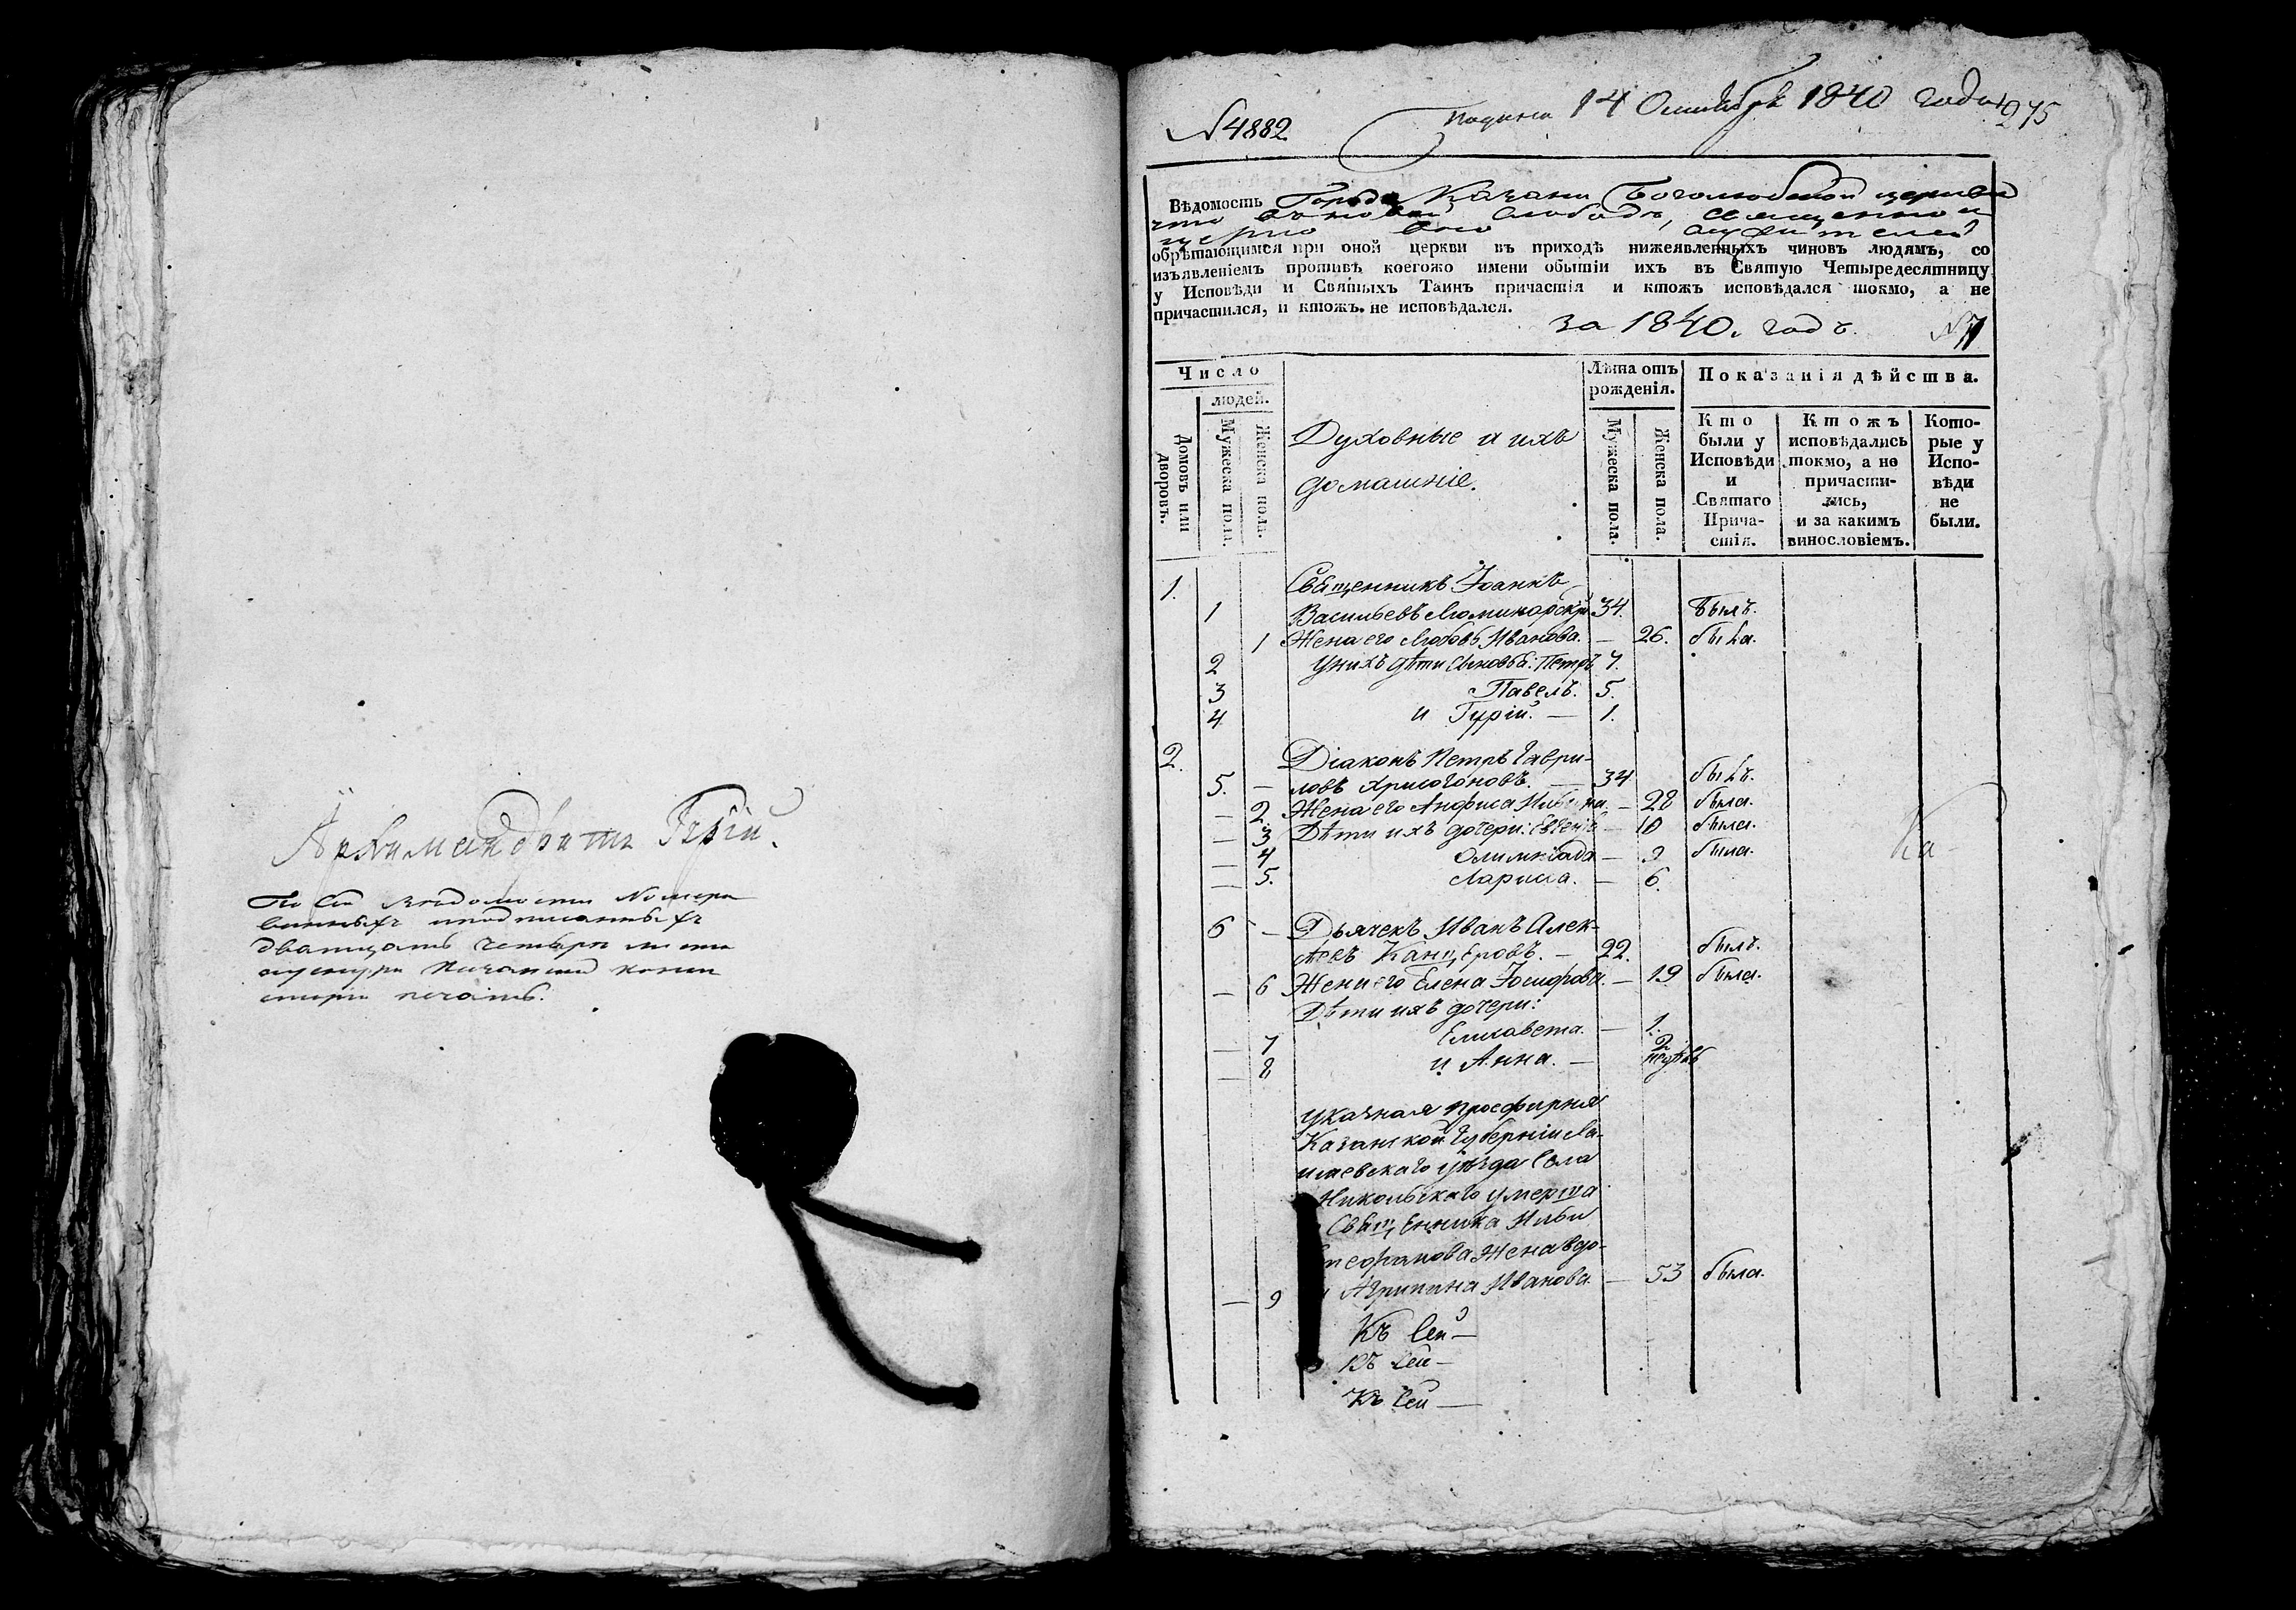 Архимандритъ Гурій.
По сей вѣдомости номеро
ванныхъ
дватцать четыре листа

печать.
N 4882
14 Октября 1840 года
275
Вѣдомость Города Казани Боголюбской церкви
что въ новой слободѣ, священно и
церковно служителей
обрѣтающимся при оной церкви въ приходѣ нижеявленныхъ чиновъ людямъ, со
изъявленіемъ противъ коегожо имени обытіи ихъ въ Святую Четыредесятницу
у Исповѣди и Святыхъ Таинъ причастія и ктожъ исповѣдался токмо, а не
причастился, и ктожъ не исповѣдался.
за 1840. годъ.
Число
людей.
Домовъ или дворовъ.
Мужеска пола.
Женска пола.
Духовные и ихъ
домашніе.
Лѣта отъ
рожденія.
Мужеска пола.
Женска пола.
Показанія дѣйства.
Кто
были у
Исповѣди
и
Святаго
Прича-
стія.
Ктожъ
исповѣдались
токмо, а не
причасти-
лись,
и за какимъ
винословіемъ.
Кото-
рые у
Испо-
вѣди
не
были.
1. Священникъ Іоаннъ
1 Васильевъ Люминарскій 34. былъ.
1 Жена его Любовь Иванова. — 26. была.
2 У нихъ дѣти сыновья: Петръ 7.
3 Павелъ. 5.
4 и Гурій. — 1.
2. Діаконъ Петръ Гаври-
5. — ловъ Хрисогоновъ. — 34 былъ.
— 2. Жена его Анфиса — 28 была.
— 3 Дѣти ихъ дочери: — 10 была.
— 4 Олимпіада — 9 была.
— 5. Лариса. — 6.
6 — Дьячекъ Иванъ Алек-
ѣевъ Канцеровъ. — 22. былъ.
— 6 Жена его Елена Іосифова. — 19 была.
Дѣти ихъ дочери:
— 7 Елисавета. — 1.
— 8 и Анна. — 2 недѣль
Указная просфирня
Казанской Губерніи Ла-
ишевскаго уѣзда села
Никольскаго умерша
Священника Ильи
Стефанова жена вдо-
— 9 Агрипина Иванова. — 53 была.
Къ сей —
Къ сей —
Къ сей —
Ка-